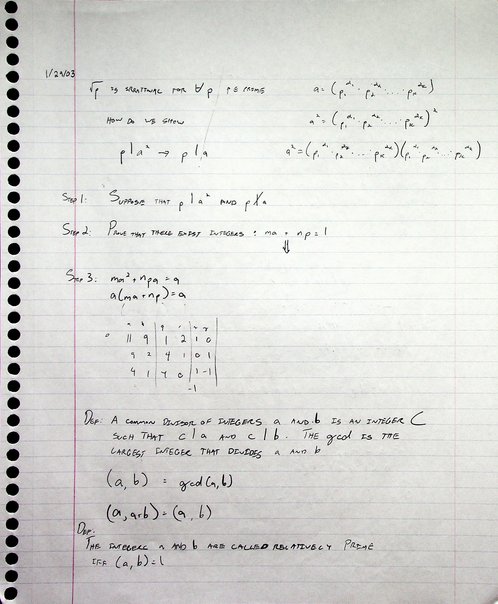 1/29/03
√p is irrational for ∀ p p ∈ prime
a = (p₁^α₁ · p₂^α₂ · ... · pₖ^αₖ)
How do we show
a² = (p₁^α₁ · p₂^α₂ · ... · pₖ^αₖ)²
p | a² → p | a
a² = (p₁^α₁ · p₂^α₂ · ... · pₖ^αₖ)(p₁^α₁ · p₂^α₂ · ... · pₖ^αₖ)
Step 1: Suppose that p | a² and p ∤ a
Step 2: Prove that there exist integers : ma + np = 1
⇓
Step 3: ma² + npa = a
a(ma + np) = a
11 9 1 2 1 0
9 2 4 1 0 1
4 1 4 0 1 -1
-1
Def: A common divisor of integers a and b is an integer C
such that c | a and c | b. The gcd is the
largest integer that divides a and b
(a, b) = gcd(a, b)
(a, a+b) = (a, b)
Def:
The integers a and b are called relatively prime
iff (a, b) = 1